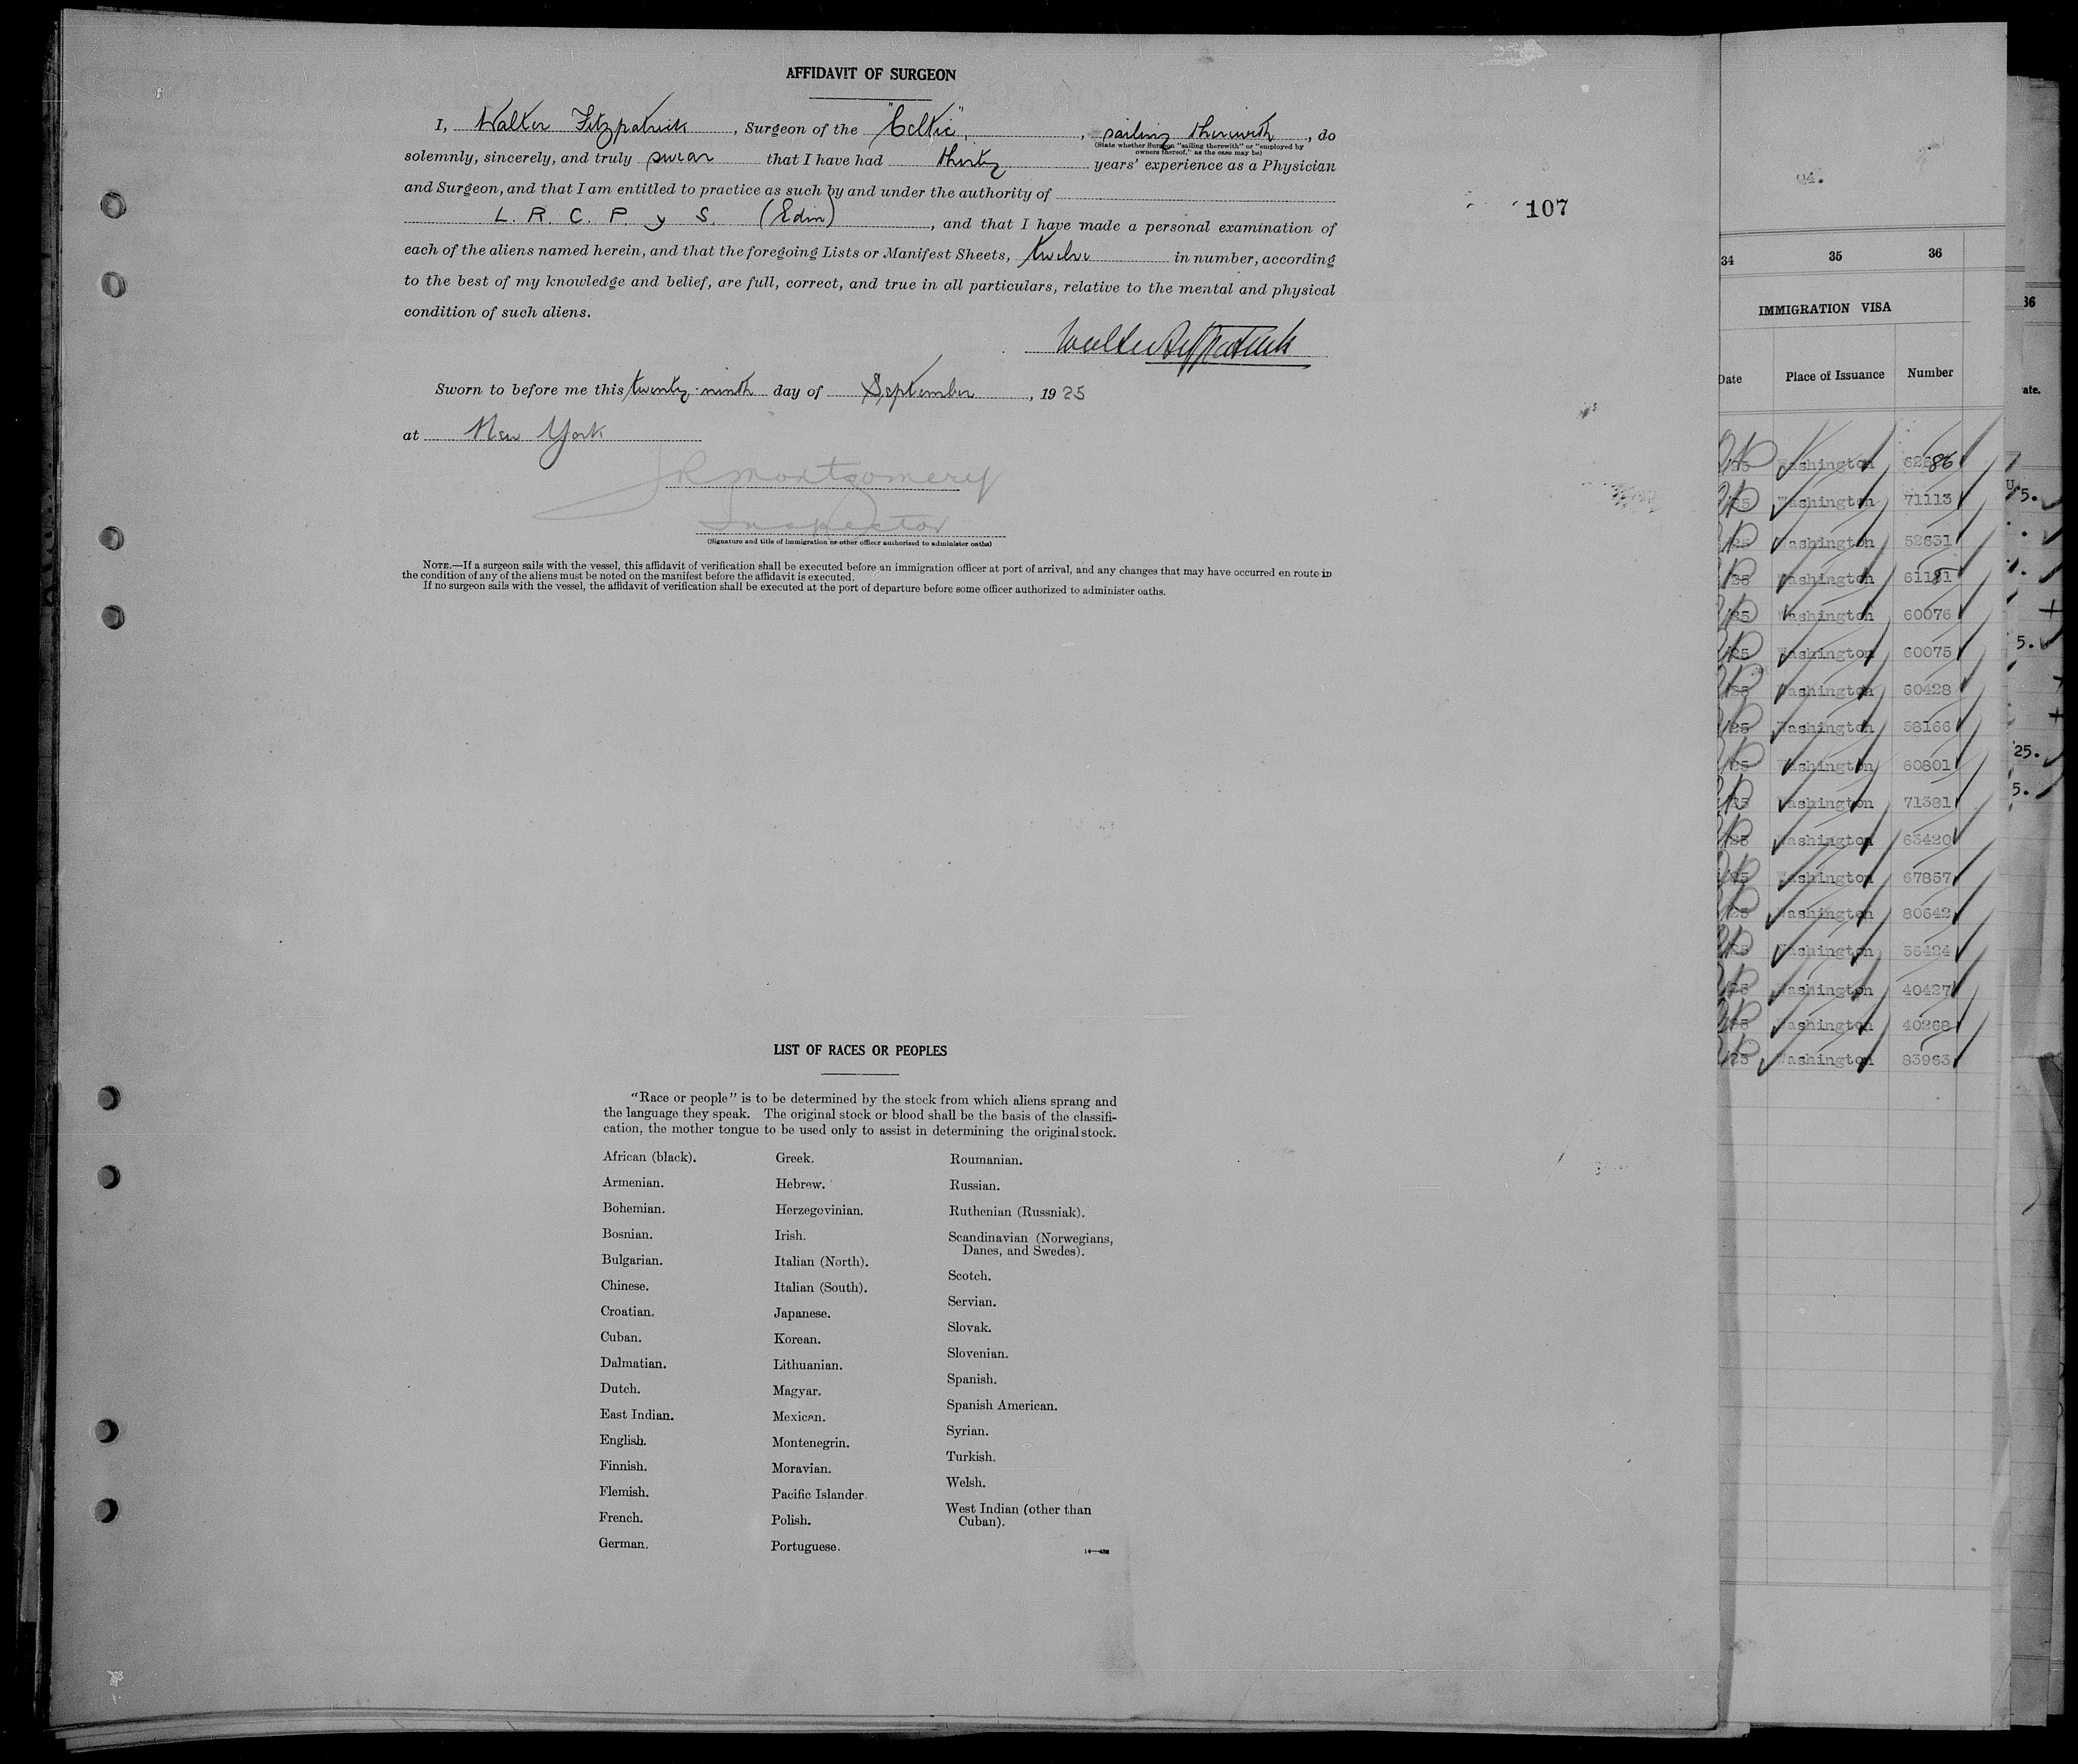 AFFIDAVIT OF SURGEON
I, Walter Fitzpatrick, Surgeon of the "Celtic", sailing therewith, do
(State whether Surgeon "sailing therewith" or "employed by
owners thereof," as the case may be)
solemnly, sincerely, and truly swear that I have had thirty years' experience as a Physician
and Surgeon, and that I am entitled to practice as such by and under the authority of
L. R. C. P. y S. (Edin), and that I have made a personal examination of
107
each of the aliens named herein, and that the foregoing Lists or Manifest Sheets, twelve in number, according
to the best of my knowledge and belief, are full, correct, and true in all particulars, relative to the mental and physical
condition of such aliens.
Walter Fitzpatrick
Sworn to before me this twenty-ninth day of September, 1925
at New York
JR Montgomery
Inspector
(Signature and title of immigration or other officer authorized to administer oaths)
NOTE.—If a surgeon sails with the vessel, this affidavit of verification shall be executed before an immigration officer at port of arrival, and any changes that may have occurred en route in
the condition of any of the aliens must be noted on the manifest before the affidavit is executed.
If no surgeon sails with the vessel, the affidavit of verification shall be executed at the port of departure before some officer authorized to administer oaths.
LIST OF RACES OR PEOPLES
"Race or people" is to be determined by the stock from which aliens sprang and
the language they speak. The original stock or blood shall be the basis of the classifi-
cation, the mother tongue to be used only to assist in determining the original stock.
African (black).
Armenian.
Bohemian.
Bosnian.
Bulgarian.
Chinese.
Croatian.
Cuban.
Dalmatian.
Dutch.
East Indian.
English.
Finnish.
Flemish.
French.
German.
Greek.
Hebrew.
Herzegovinian.
Irish.
Italian (North).
Italian (South).
Japanese.
Korean.
Lithuanian.
Magyar.
Mexican.
Montenegrin.
Moravian.
Pacific Islander.
Polish.
Portuguese.
Roumanian.
Russian.
Ruthenian (Russniak).
Scandinavian (Norwegians,
Danes, and Swedes).
Scotch.
Servian.
Slovak.
Slovenian.
Spanish.
Spanish American.
Syrian.
Turkish.
Welsh.
West Indian (other than
Cuban).
34 35 36
IMMIGRATION VISA
Date Place of Issuance Number
Washington
25 Washington 71113
Washington 52631
25 Washington
25 Washington 60076
25 Washington 60075
25 Washington 60428
25 Washington 58166
25 Washington 60801
25 Washington 71381
25 Washington 63420
25 Washington 67857
25 Washington 80642
25 Washington 56424
25 Washington 40427
25 Washington 40268
25 Washington 83963
36
ate.
5.
5.
25.
5.